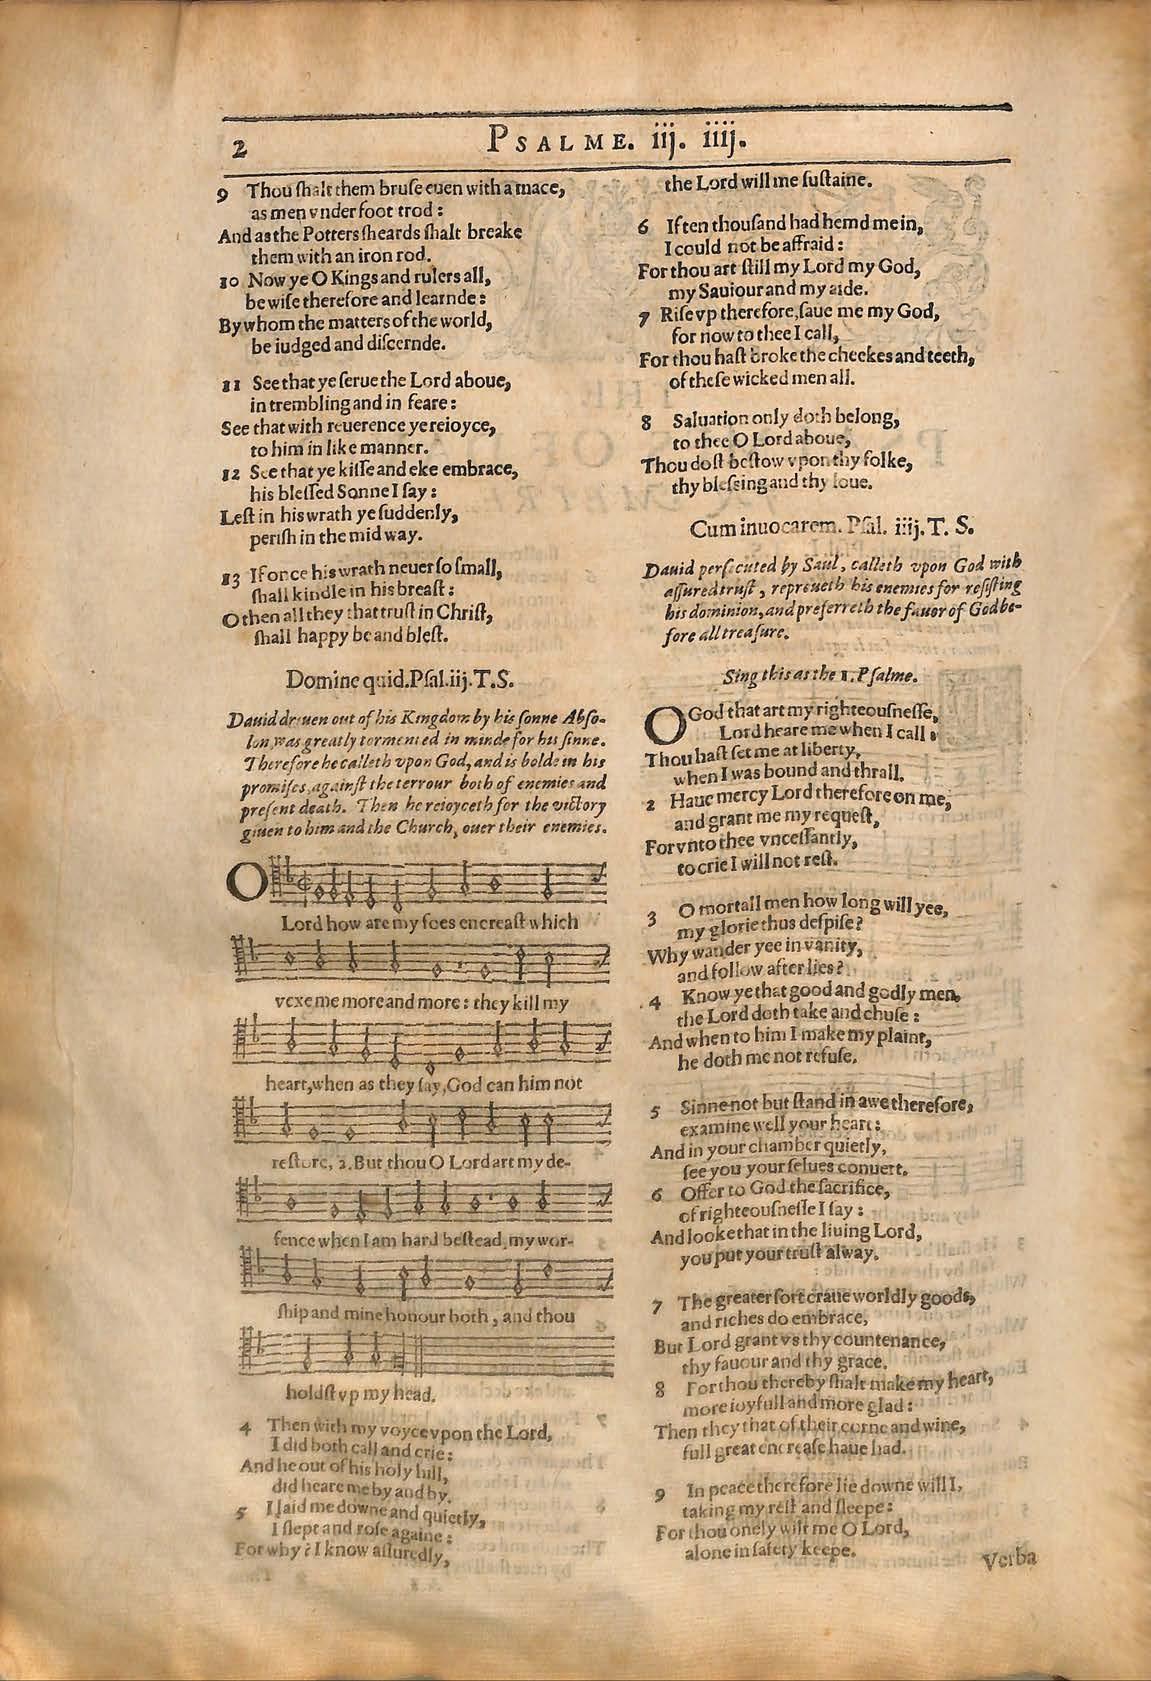 2
PSALME. iij. iiij.
9 Thou ſhalt them bruſe euen with a mace,
as men vnder foot trod:
And as the Potters ſheards ſhalt breake
them with an iron rod.
10 Now ye O Kings and rulers all,
be wiſe therefore and learnde:
By whom the matters of the world,
be iudged and diſcernde.
11 See that ye ſerue the Lord aboue,
in trembling and in feare:
See that with reuerence ye reioyce,
to him in like manner.
12 See that ye kiſſe and eke embrace,
his bleſſed Sonne I ſay:
Leſt in his wrath ye ſuddenly,
periſh in the mid way.
13 If once his wrath neuer ſo ſmall,
ſhall kindle in his breaſt:
O then all they that truſt in Chriſt,
ſhall happy be and bleſt.
Domine quid. Pſal. iij. T. S.
Dauid driuen out of his Kingdom by his ſonne Abſo-
lon, was greatly tormented in minde for his ſinne.
Therefore he calleth vpon God, and is bolde in his
promiſes, againſt the terrour both of enemies and
preſent death. Then he reioyceth for the victory
giuen to him and the Church, ouer their enemies.
O
Lord how are my foes encreaſt which
vexe me more and more: they kill my
heart, when as they ſay, God can him not
reſtore, 2. But thou O Lord art my de-
fence when I am hard beſtead, my wor-
ſhip and mine honour both, and thou
holdſt vp my head.
4 Then with my voyce vpon the Lord,
I did both call and crie:
And he out of his holy hill,
did heare me by and by.
5 I laid me downe and quietly,
I ſlept and roſe againe:
For why? I know aſſuredly,
the Lord will me ſuſtaine.
6 If ten thouſand had hemd me in,
I could not be affraid:
For thou art ſtill my Lord my God,
my Sauiour and my aide.
7 Riſe vp therefore, ſaue me my God,
for now to thee I call,
For thou haſt broke the cheekes and teeth,
of theſe wicked men all.
8 Saluation only doth belong,
to thee O Lord aboue,
Thou doſt beſtow vpon thy folke,
thy bleſsing and thy loue.
Cum inuocarem. Pſal. iiij. T. S.
Dauid perſecuted by Saul, calleth vpon God with
aſſured truſt, reproueth his enemies for reſiſting
his dominion, and preferreth the fauor of God be-
fore all treaſure.
Sing this as the 1. Pſalme.
O God that art my righteouſneſſe,
Lord heare me when I call:
Thou haſt ſet me at liberty,
when I was bound and thrall.
2 Haue mercy Lord therefore on me,
and grant me my requeſt,
For vnto thee vnceſſantly,
to crie I will not reſt.
3 O mortall men how long will yee,
my glorie thus deſpiſe?
Why wander yee in vanity,
and follow after lies?
4 Know ye that good and godly men,
the Lord doth take and chuſe:
And when to him I make my plaint,
he doth me not refuſe.
5 Sinne not but ſtand in awe therefore,
examine well your heart:
And in your chamber quietly,
ſee you your ſelues conuert.
6 Offer to God the ſacrifice,
of righteouſneſſe I ſay:
And looke that in the liuing Lord,
you put your truſt alway.
7 The greater ſort craue worldly goods,
and riches do embrace,
But Lord grant vs thy countenance,
thy fauour and thy grace.
8 For thou thereby ſhalt make my heart,
more ioyfull and more glad:
Then they that of their corne and wine,
full great encreaſe haue had.
9 In peace therefore lie downe will I,
taking my reſt and ſleepe:
For thou onely wilt me O Lord,
alone in ſafety keepe.
Verba